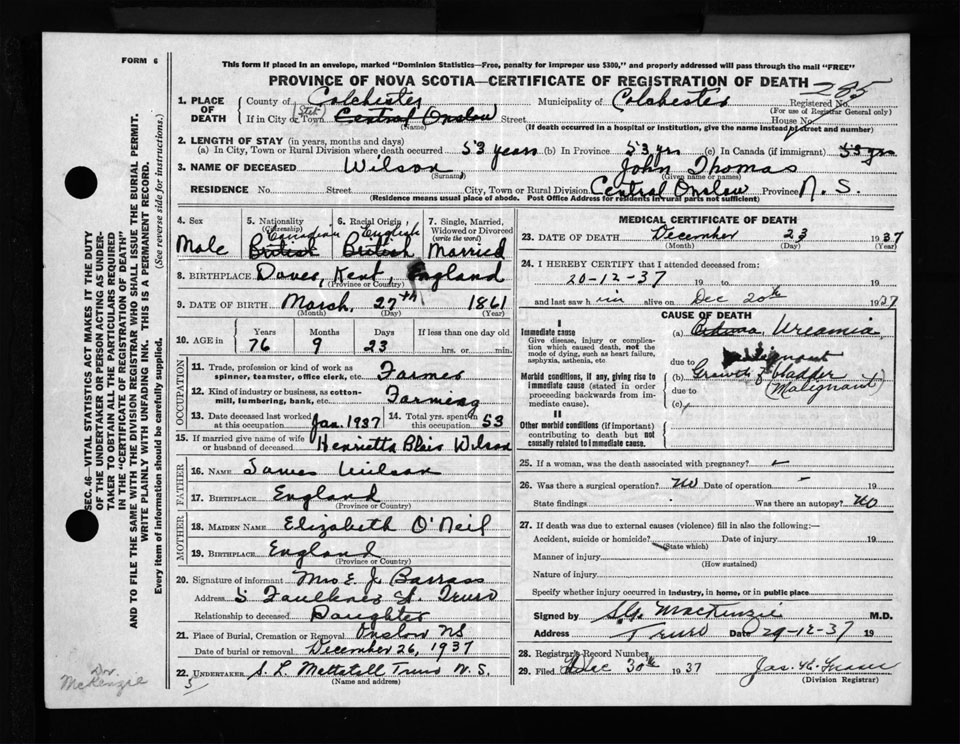 FORM 6
This form if placed in an envelope, marked "Dominion Statistics—Free, penalty for improper use $300," and properly addressed will pass through the mail "FREE"
PROVINCE OF NOVA SCOTIA—CERTIFICATE OF REGISTRATION OF DEATH
285
1. PLACE OF DEATH
County of Colchester Municipality of Colchester Registered No.
(For use of Registrar General only)
If in City or Town Central Onslow Street House No.
(Name) (If death occurred in a hospital or institution, give the name instead of street and number)
2. LENGTH OF STAY (in years, months and days)
(a) In City, Town or Rural Division where death occurred 53 years (b) In Province 53 yrs (c) In Canada (if immigrant) 53 yrs
3. NAME OF DECEASED Wilson John Thomas
(Surname) (Given name or names)
RESIDENCE No. Street City, Town or Rural Division Central Onslow Province N. S.
(Residence means usual place of abode. Post Office Address for residents in rural parts not sufficient)
4. Sex
Male
5. Nationality (Citizenship)
Canadian
British
6. Racial Origin
English
British
7. Single, Married, Widowed or Divorced (write the word)
Married
8. BIRTHPLACE Dover, Kent, England
(Province or Country)
9. DATE OF BIRTH March, 27th 1861
(Month) (Day) (Year)
10. AGE
Years Months Days If less than one day old
76 9 23 hrs. or min.
OCCUPATION
11. Trade, profession or kind of work as spinner, teamster, office clerk, etc. Farmer
12. Kind of industry or business, as cotton-mill, lumbering, bank, etc. Farming
13. Date deceased last worked at this occupation Jan. 1937
14. Total yrs. spent in this occupation 53
15. If married give name of wife or husband of deceased Henrietta Blair Wilson
FATHER
16. NAME James Wilson
17. BIRTHPLACE England
(Province or Country)
MOTHER
18. MAIDEN NAME Elizabeth O'Neil
19. BIRTHPLACE England
(Province or Country)
20. Signature of informant Mrs E. J. Barrass
Address 5 Faulkner St. Truro
Relationship to deceased Daughter
21. Place of Burial, Cremation or Removal Onslow NS
Date of burial or removal December 26, 1937
22. UNDERTAKER S. L. Mattatall Truro N. S.
(Name and address)
MEDICAL CERTIFICATE OF DEATH
23. DATE OF DEATH December 23 1937
(Month) (Day) (Year)
24. I HEREBY CERTIFY that I attended deceased from:
20-12-37 19 to 19
and last saw him alive on Dec 20th 1937
CAUSE OF DEATH
I
Immediate cause
Give disease, injury or complication which caused death, not the mode of dying, such as heart failure, asphyxia, asthenia, etc.
Morbid conditions, if any, giving rise to immediate cause (stated in order proceeding backwards from immediate cause).
II
Other morbid conditions (if important) contributing to death but not causally related to immediate cause.
(a) Uraemia
due to
(b) Growth of bladder
(Malignant)
due to
(c)
25. If a woman, was the death associated with pregnancy?
26. Was there a surgical operation? No Date of operation 19
State findings Was there an autopsy? No
27. If death was due to external causes (violence) fill in also the following:—
Accident, suicide or homicide? Date of injury 19
(State which)
Manner of injury
(How sustained)
Nature of injury
Specify whether injury occurred in industry, in home, or in public place
Signed by S.G. MacKenzie M.D.
Address Truro Date 29-12-37 19
28. Registrar's Record Number
29. Filed Dec 30th 1937 Jas. H. Fraser
(Division Registrar)
SEC. 46—VITAL STATISTICS ACT MAKES IT THE DUTY
OF THE UNDERTAKER OR PERSON ACTING AS UNDER-
TAKER TO OBTAIN ALL THE PARTICULARS REQUIRED
IN THE "CERTIFICATE OF REGISTRATION OF DEATH"
AND TO FILE THE SAME WITH THE DIVISION REGISTRAR WHO SHALL ISSUE THE BURIAL PERMIT.
WRITE PLAINLY WITH UNFADING INK. THIS IS A PERMANENT RECORD.
Every item of information should be carefully supplied. (See reverse side for instructions.)
Dr. McKenzie
5